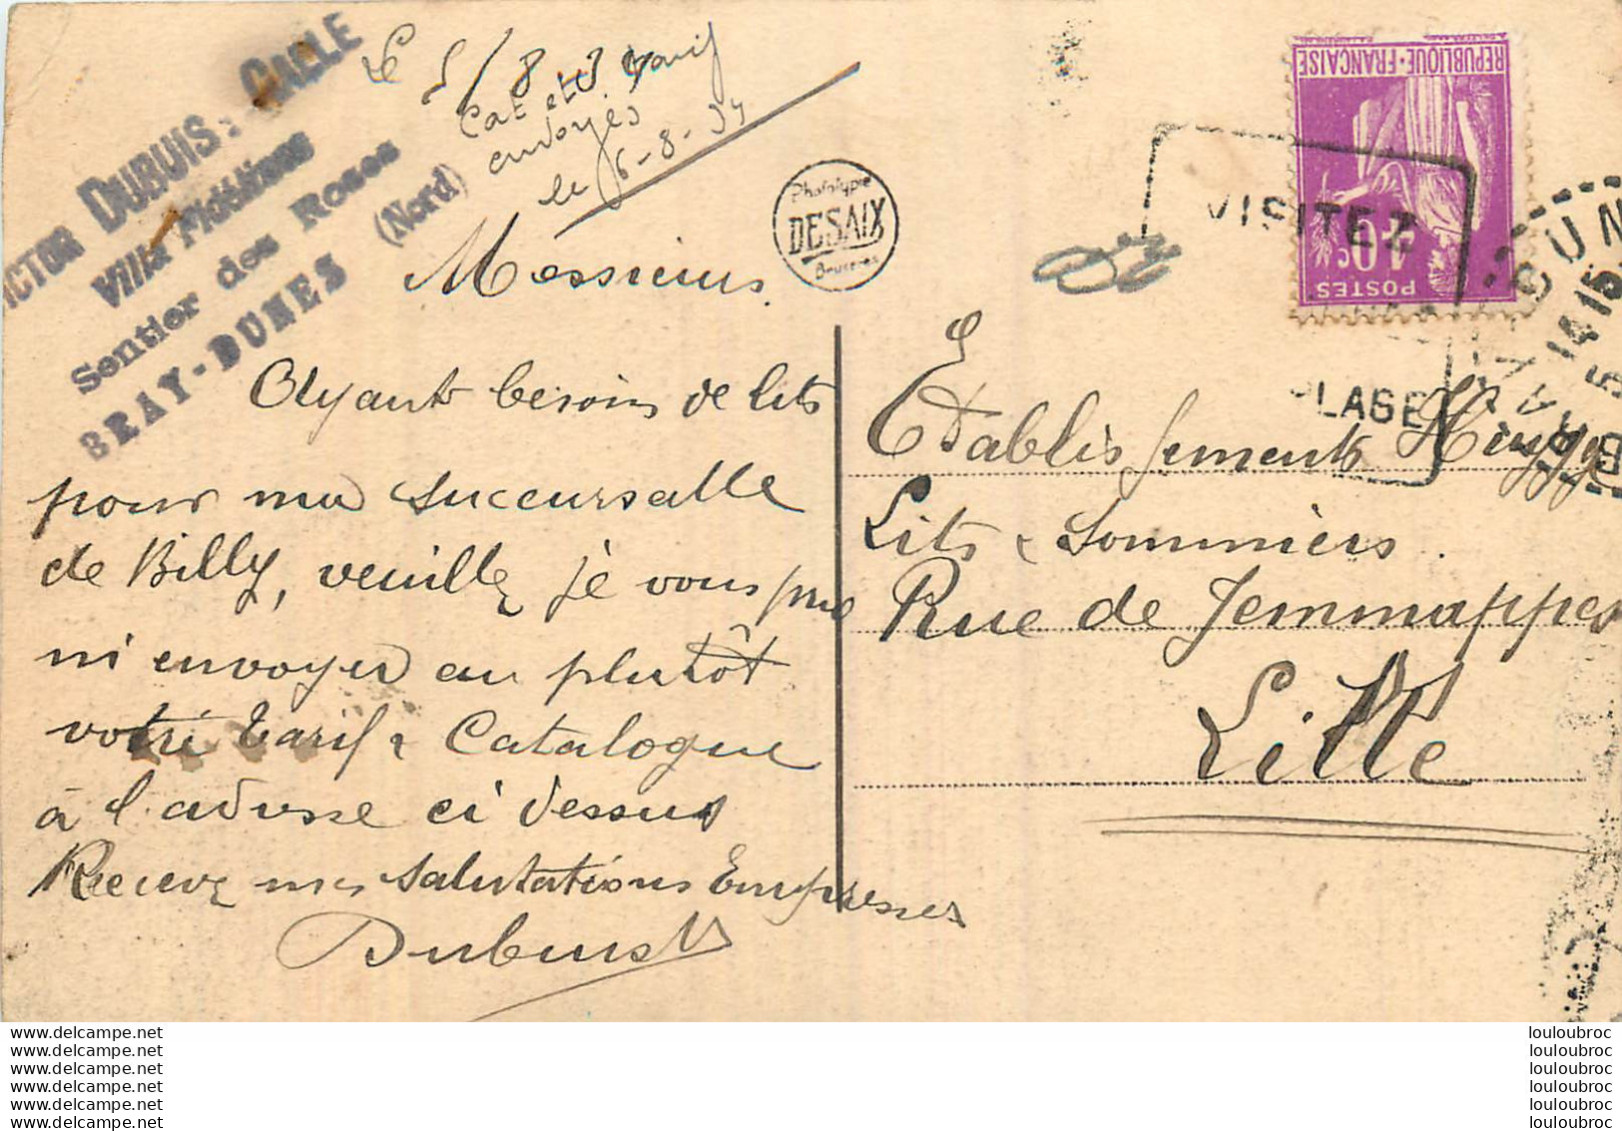 VICTOR DUBUIS : CAELE
Villa
Sentier des Roses
BRAY-DUNES (Nord)
Le 5/8 34
Cat et tarif
envoyés
le 6-8-34
Messieurs
Phototypie
DESAIX
Bruxelles
REPUBLIQUE·FRANÇAISE
40c
POSTES
VISITEZ
PLAGE
14 15
5
Ayant besoin de lits
pour ma succursalle
de Billy, veuillez je vous prie
m'envoyer au plutôt
votre tarif & Catalogue
à l'adresse ci dessus
Recevez mes salutations Empressées
Dubuis V
Etablissements
Lits & Sommiers.
Rue de Jemmappes
Lille
www.delcampe.net
www.delcampe.net
www.delcampe.net
www.delcampe.net
www.delcampe.net
www.delcampe.net
louloubroc
louloubroc
louloubroc
louloubroc
louloubroc
louloubroc